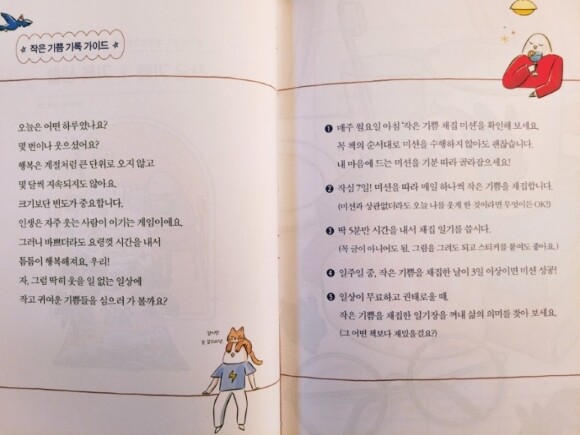 작은 기쁨 기록 가이드
오늘은 어떤 하루였나요?
몇 번이나 웃으셨어요?
행복은 계절처럼 큰 단위로 오지 않고
몇 달씩 지속되지도 않아요.
크기보단 빈도가 중요합니다.
인생은 자주 웃는 사람이 이기는 게임이에요.
그러니 바쁘더라도 요령껏 시간을 내서
틈틈이 행복해져요, 우리!
자, 그럼 딱히 웃을 일 없는 일상에
작고 귀여운 기쁨들을 심으러 가 볼까요?
❶ 매주 월요일 아침 '작은 기쁨 채집 미션'을 확인해 보세요.
꼭 책의 순서대로 미션을 수행하지 않아도 괜찮습니다.
내 마음에 드는 미션을 기분 따라 골라잡으세요!
❷ 작심 7일! 미션을 따라 매일 하나씩 작은 기쁨을 채집합니다.
(미션과 상관없더라도 오늘 나를 웃게 한 것이라면 무엇이든 OK!)
❸ 딱 5분만 시간을 내서 채집 일기를 씁시다.
(꼭 글이 아니어도 됨. 그림을 그려도 되고 스티커를 붙여도 좋아요.)
❹ 일주일 중, 작은 기쁨을 채집한 날이 3일 이상이면 미션 성공!
❺ 일상이 무료하고 권태로울 때,
작은 기쁨을 채집한 일기장을 꺼내 삶의 의미를 찾아 보세요.
(그 어떤 책보다 재밌을걸요?)